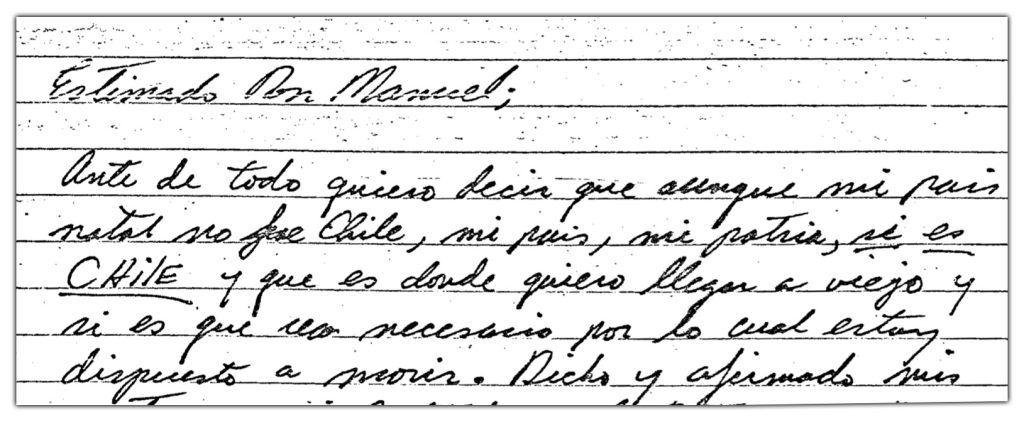 Estimado Don Manuel;
Ante de todo quiero decir que aunque mi pais
natal no fue Chile, mi pais, mi patria, si es
CHilE y que es donde quiero llegar a viejo y
si es que sea necesario por lo cual estoy
dispuesto a morir. Dicho y afirmado mis